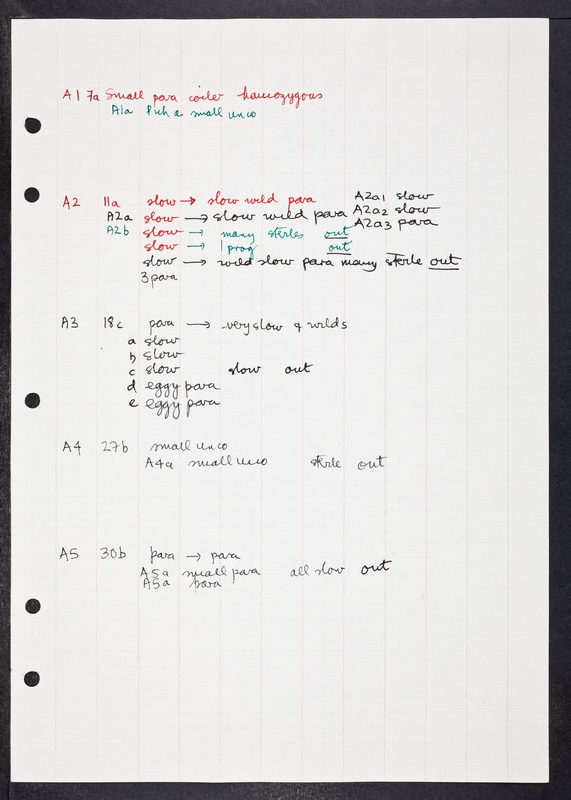 A1 7a Small para coiler homozygous
A1a Pick a small unco
A2 11a slow → slow wild para A2a1 slow
A2a slow → slow wild para A2a2 slow
A2a3 para
A2b slow → many steriles out
slow → 1 prog out
slow → wild slow para many sterile out
3 para
A3 18c para → very slow & wilds
a slow
b slow
c slow slow out
d eggy para
e eggy para
A4 27b small unco
A4a small unco sterile out
A5 30b para → para
A5a small para all slow out
A5a para